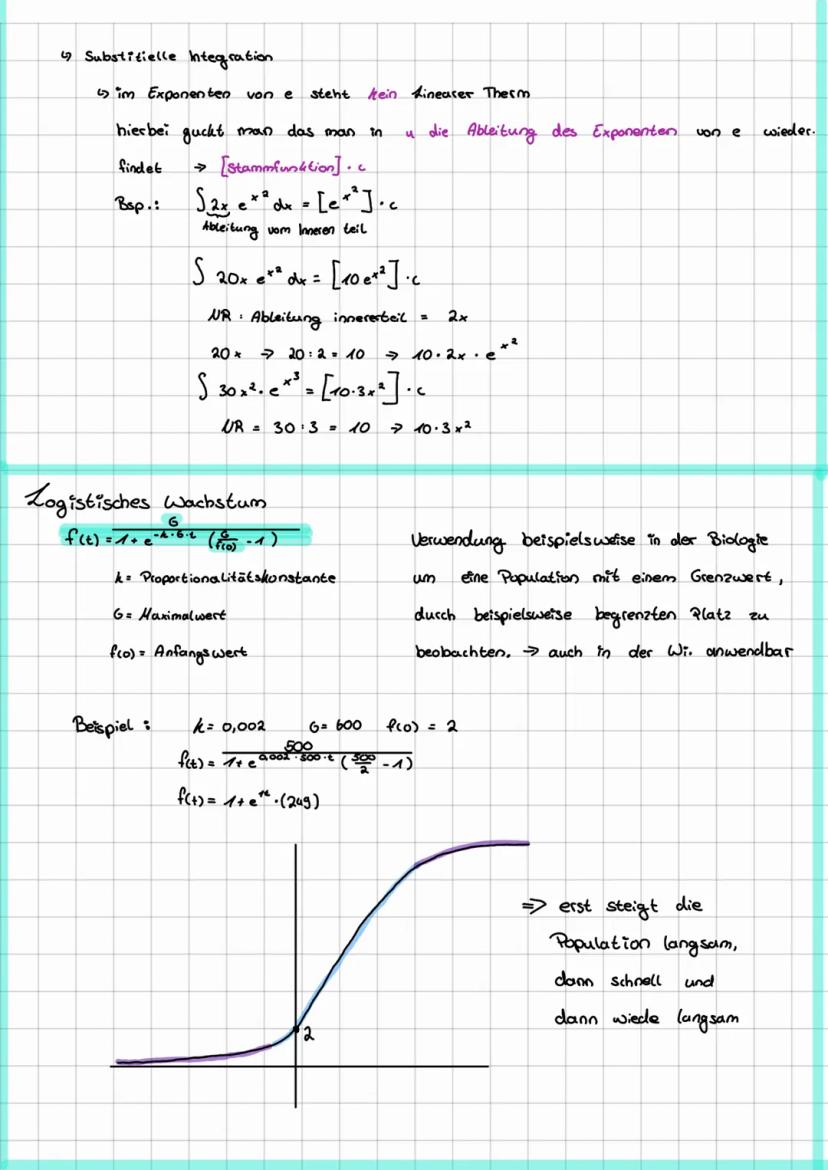 ↳ Substitielle Integration
↳ im Exponenten von e steht kein Linearer Therm
hierbei guckt man das man in u die Ableitung des Exponenten von e wieder.
findet → [Stammfunktion] · c
Bsp.: ∫ 2x e^x² dx = [e^x²] · c
Ableitung vom Inneren teil
∫ 20x e^x² dx = [10 e^x²] · c
NR : Ableitung innererteil = 2x
20x → 20 : 2 = 10 → 10 · 2x · e^x²
∫ 30x² · e^x³ = [10·3x²] · c
NR = 30 : 3 = 10 → 10 · 3x²
Logistisches Wachstum
f(t) = G / 1 + e^-k·G·t (G/f(0) - 1)
k = Proportionalitätskonstante
G = Maximalwert
f(0) = Anfangswert
Verwendung beispielsweise in der Biologie
um eine Population mit einem Grenzwert,
durch beispielsweise begrenzten Platz zu
beobachten. → auch in der Wi. anwendbar
Beispiel : k = 0,002 G = 600 f(0) = 2
f(t) = 500 / 1 + e^0,002·500·t (500/2 - 1)
f(t) = 1 + e^1t · (249)
2
⇒ erst steigt die
Population langsam,
dann schnell und
dann wiede langsam